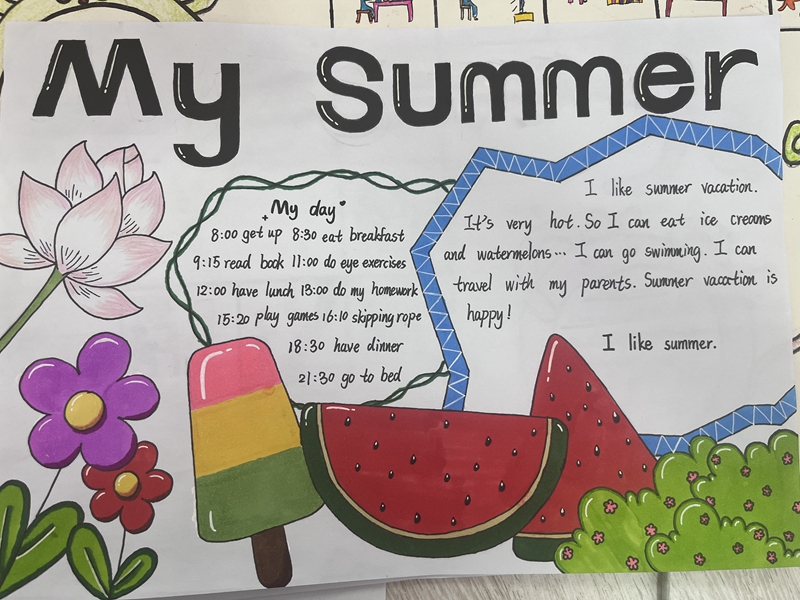 My Summer
My day
8:00 get up 8:30 eat breakfast
9:15 read book 11:00 do eye exercises
12:00 have lunch 13:00 do my homework
15:20 play games 16:10 skipping rope
18:30 have dinner
21:30 go to bed
I like summer vacation.
It's very hot. So I can eat ice creams
and watermelons... I can go swimming. I can
travel with my parents. Summer vacation is
happy!
I like summer.